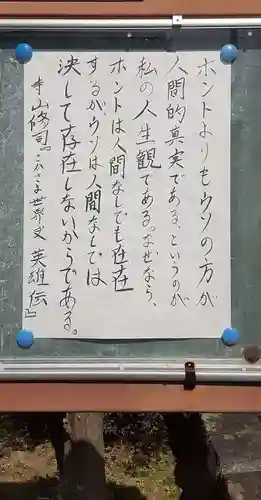 ホントよりもウソの方が
人間的真実である、というのが
私の人生観である。なぜなら、
ホントは人間なしでも存在
するが、ウソは人間なしでは
決して存在しないからである。
寺山修司『さかさま世界史 英雄伝』